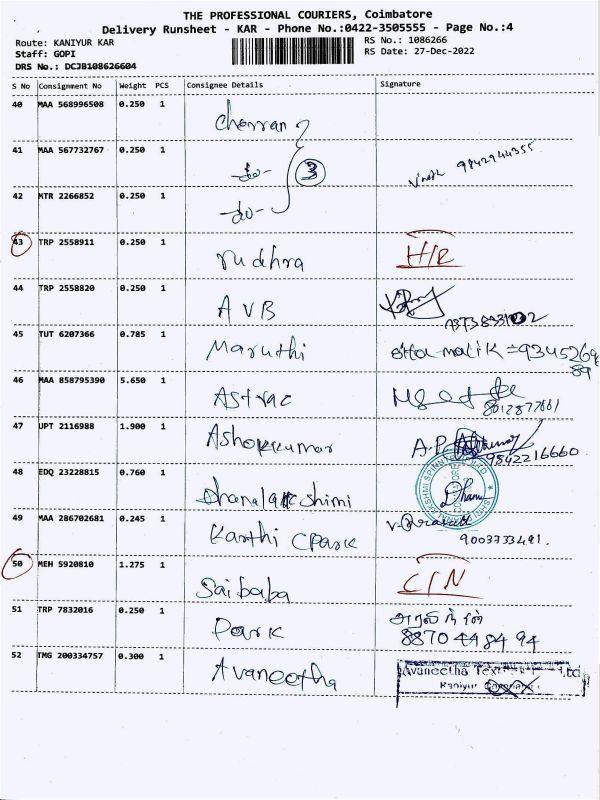 THE PROFESSIONAL COURIERS, Coimbatore
Delivery Runsheet - KAR - Phone No.:0422-3505555 - Page No.:4
Route: KANIYUR KAR
RS No.: 1086266
Staff: GOPI
RS Date: 27-Dec-2022
DRS No.: DCJB108626604
S No Consignment No Weight PCS Consignee Details Signature
40 MAA 568996508 0.250 1 Cherran
41 MAA 567732767 0.250 1 -do- 3 9842944355
42 MTR 2266852 0.250 1 -do-
43 TRP 2558911 0.250 1 rudhra
44 TRP 2558820 0.250 1 AVB
45 TUT 6207366 0.785 1 Maruthi
46 MAA 858795390 5.650 1 Astrac 8012877661
47 UPT 2116988 1.900 1 Ashokkumar A.P 9842216660
48 EDQ 23228815 0.760 1 Dhanalakshimi
49 MAA 286702681 0.245 1 Karthi CPark 9003733491.
50 MEH 5920810 1.275 1 Saibaba
51 TRP 7832016 0.250 1 Park 8870 448494
52 TMG 200334757 0.300 1 Avaneetha Avaneetha Text Ltd
Kaniyur